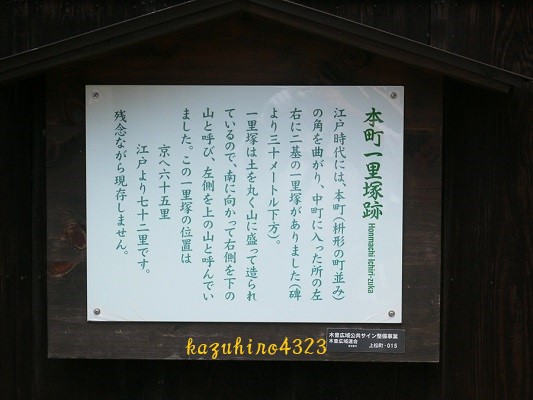 本町一里塚跡
Honmachi Ichiri-zuka
江戸時代には、本町(枡形の町並み)
の角を曲がり、中町に入った所の左
右に二基の一里塚がありました(碑
より三十メートル下方)。
一里塚は土を丸く山に盛って造られ
ているので、南に向かって右側を下の
山と呼び、左側を上の山と呼んでい
ました。この一里塚の位置は
京へ六十五里
江戸より七十二里です。
残念ながら現存しません。
木曽広域公共サイン整備事業
木曽広域連合
上松町-015
kazuhiro4323